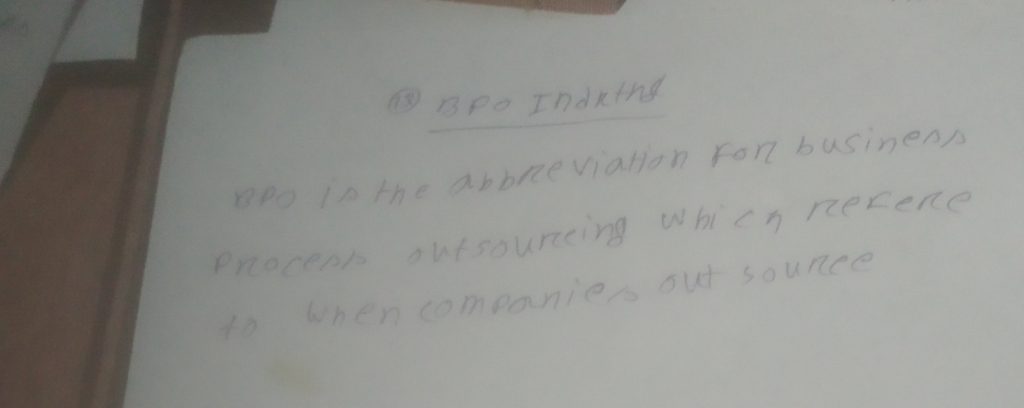 BPO Industry
BPO is the abbreviation for business
process outsourcing which refere
to when companies out source